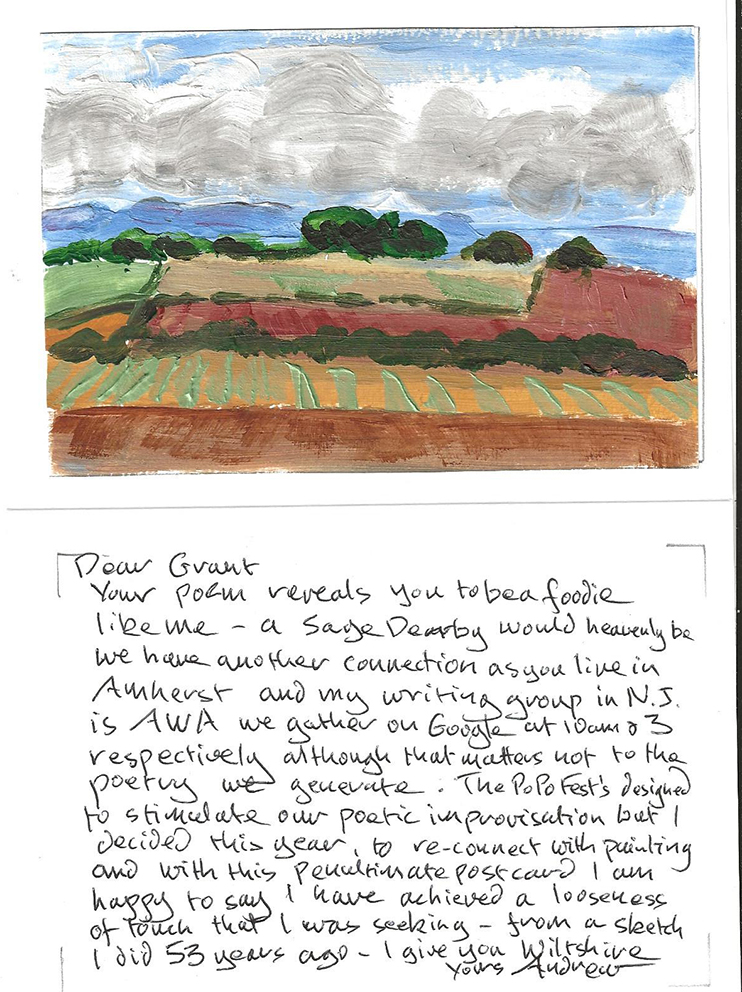 Dear Grant
Your poem reveals you to be a foodie
like me – a Sage Dearby would heavenly be
we have another connection as you live in
Amherst and my writing group in N.J.
is AWA we gather on Google at 10am & 3
respectively although that matters not to the
poetry we generate. The PoPo Fest's designed
to stimulate our poetic improvisation but I
decided this year, to re-connect with painting
and with this penultimate postcard I am
happy to say I have achieved a looseness
of touch that I was seeking – from a sketch
I did 53 years ago – I give you Wiltshire
Yours Andrew